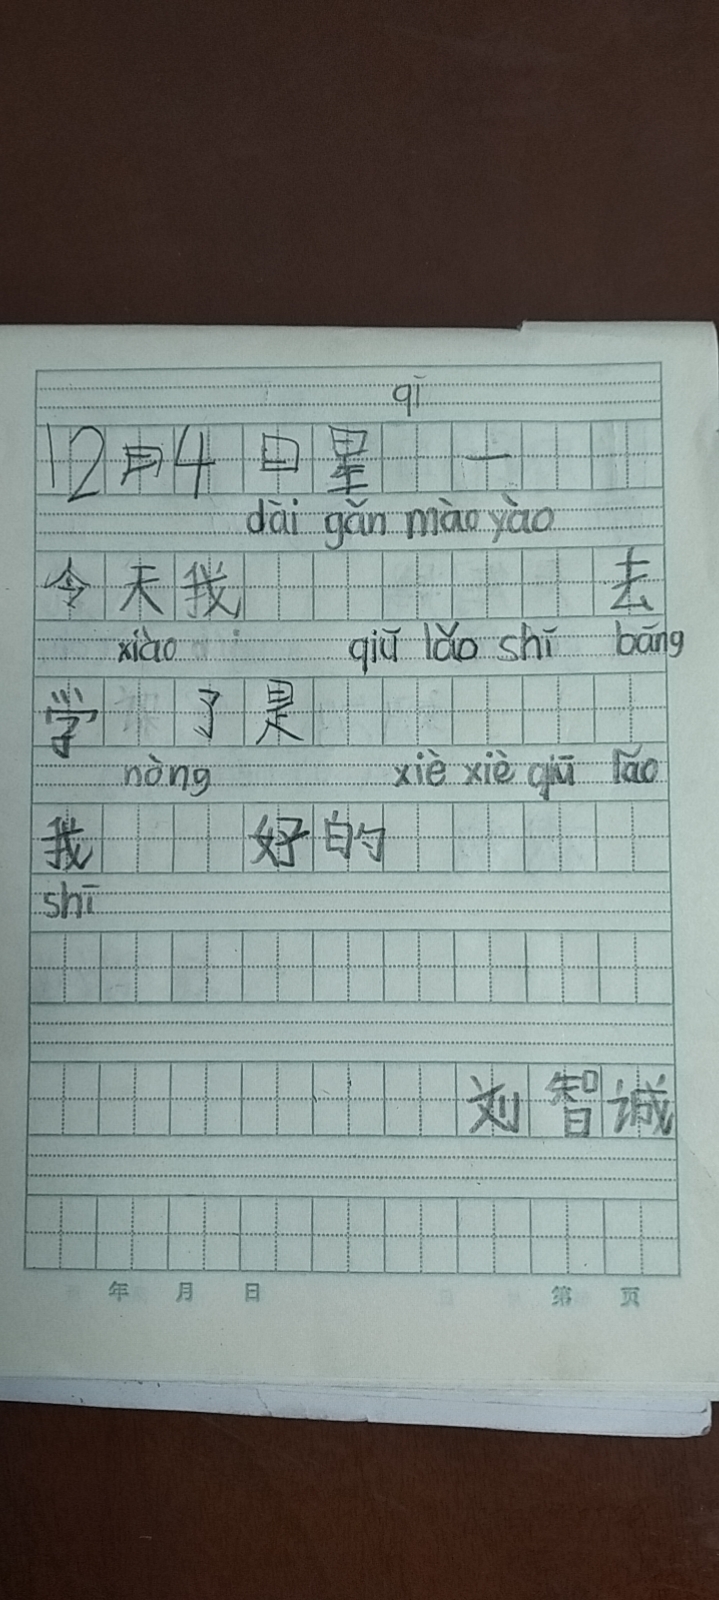 qī
12月4日星 一
dài gǎn mào yào
今天我 去
xiào qiū lǎo shī bāng
学 了是
nòng xiè xiè qiū lǎo
我 好的
shī
刘智诚
年 月 日 第 页